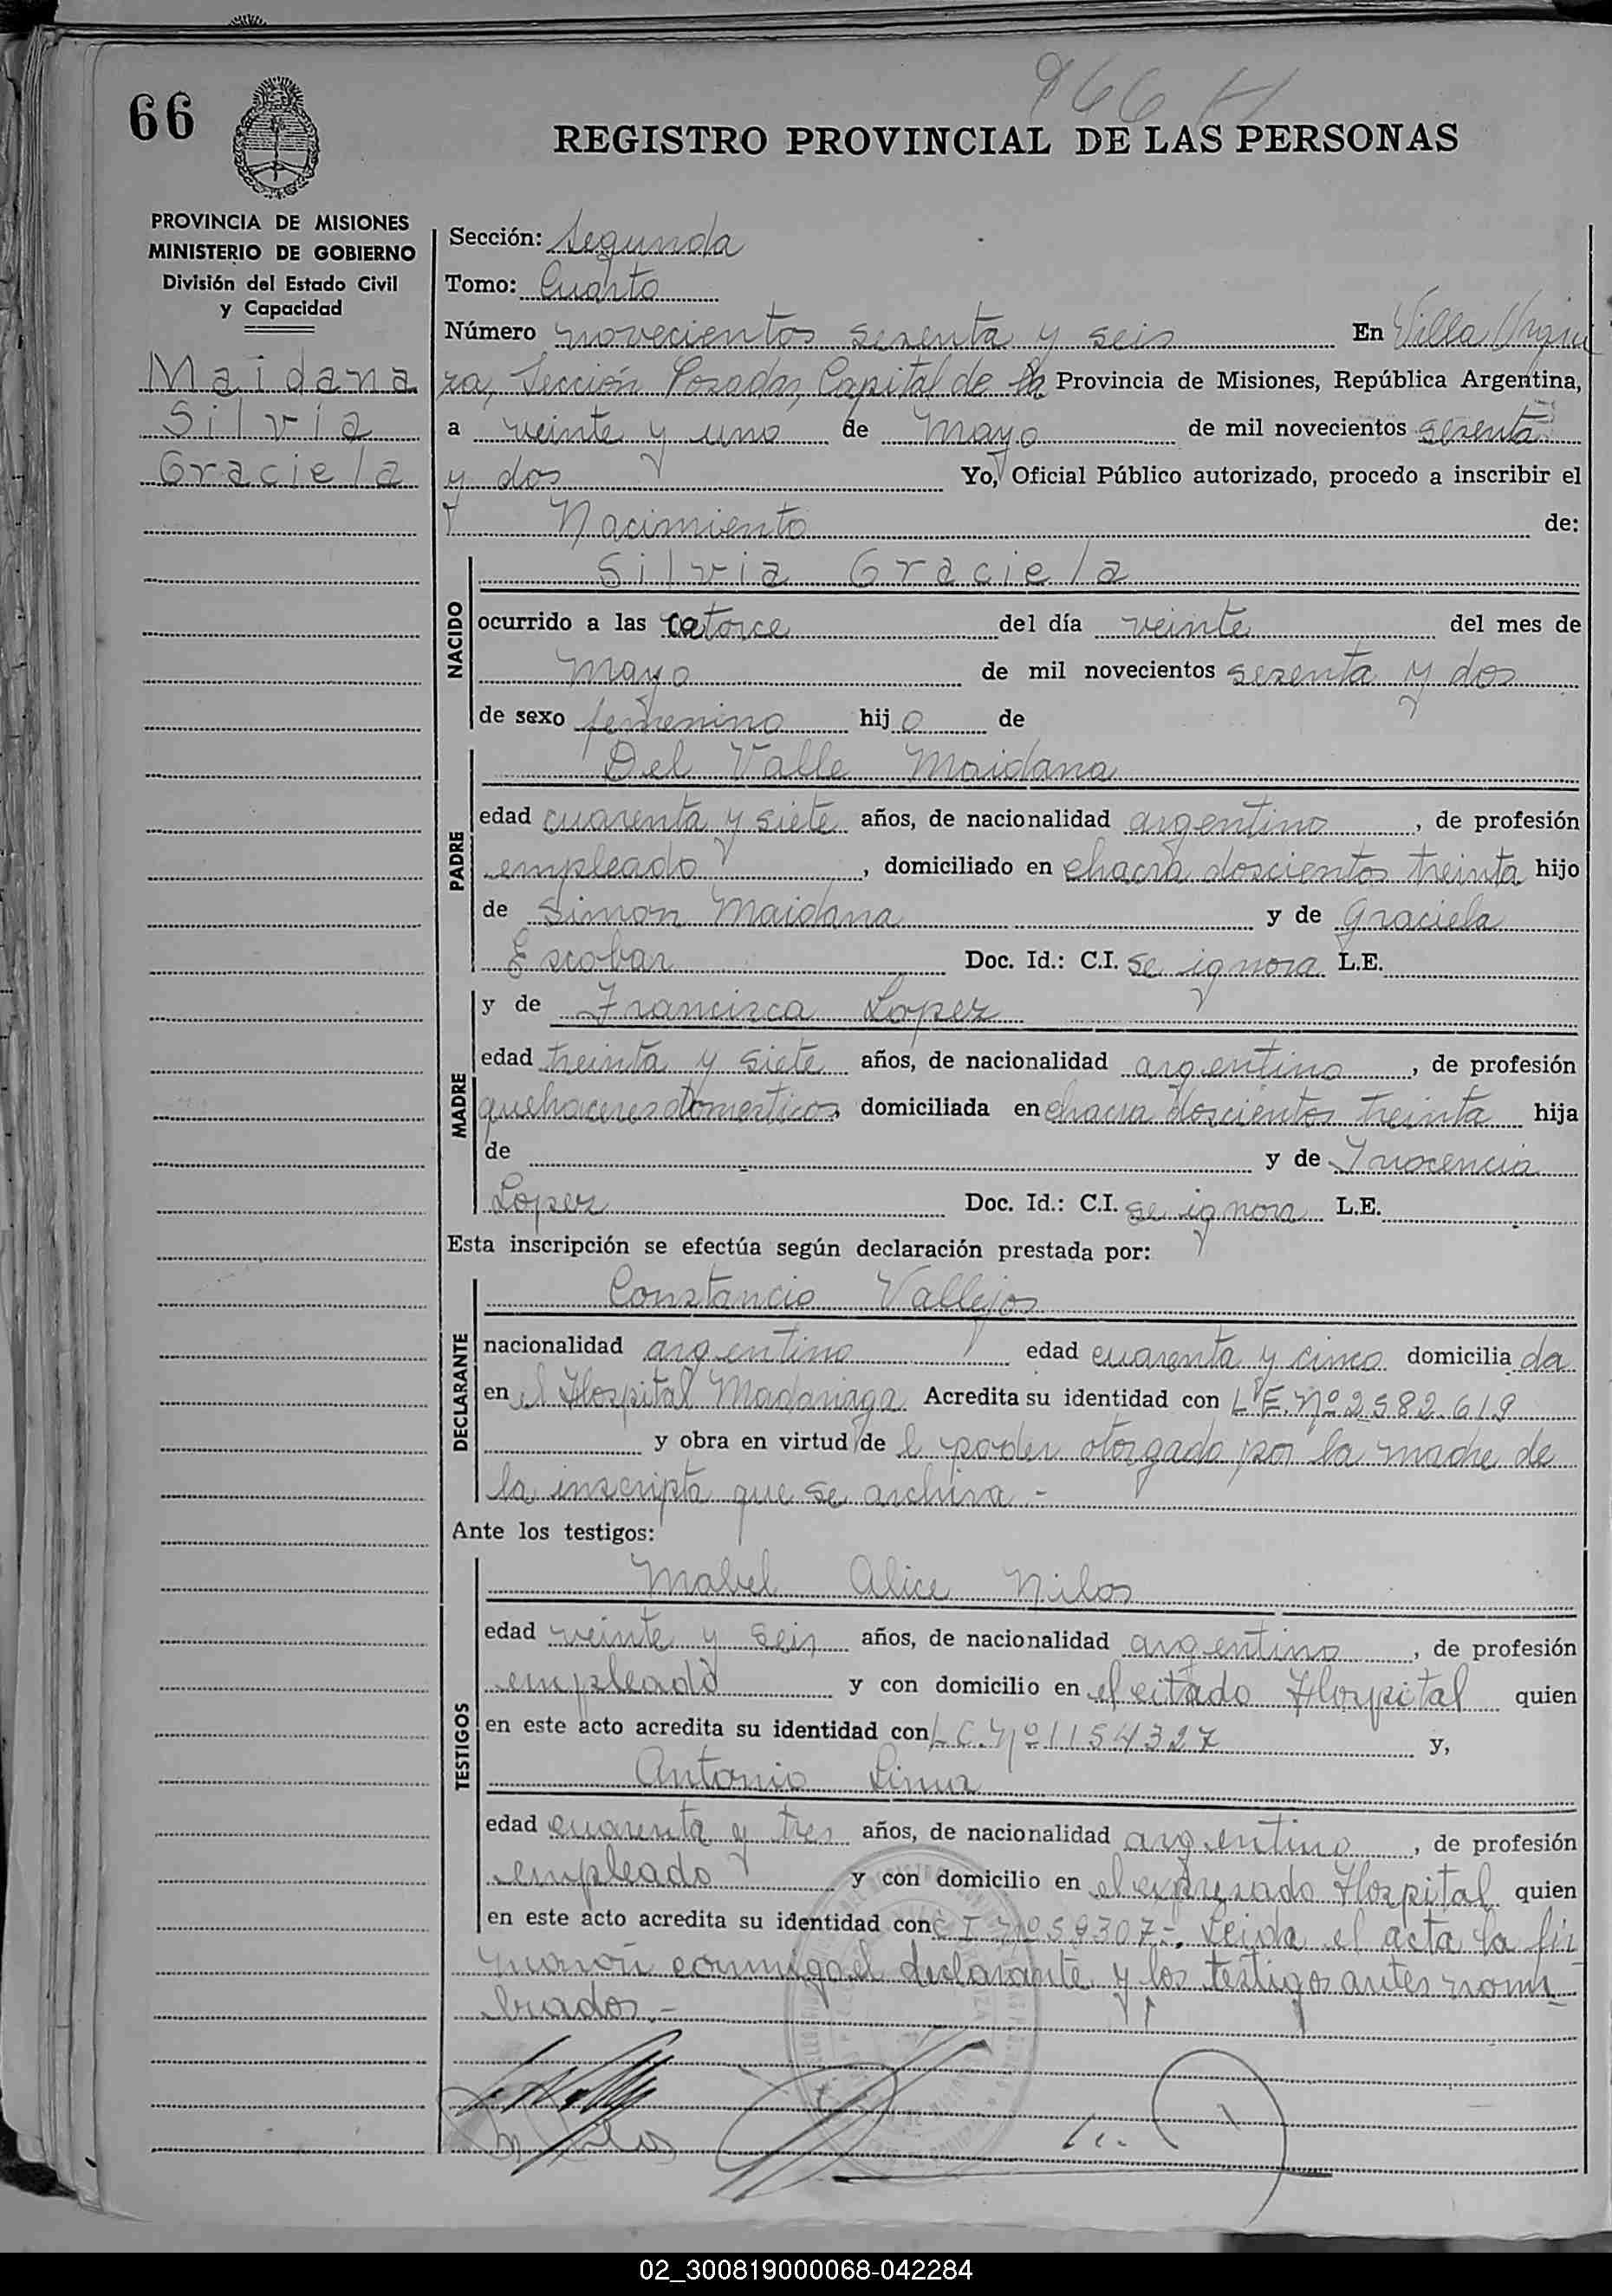 966 H
66
REGISTRO PROVINCIAL DE LAS PERSONAS
PROVINCIA DE MISIONES
MINISTERIO DE GOBIERNO
División del Estado Civil
y Capacidad
Maidana
Silvia
Graciela
Sección: Segunda
Tomo: Cuarto
Número novecientos sesenta y seis En Villa Urqui
za, Sección Posadas, Capital de la Provincia de Misiones, República Argentina,
a veinte y uno de Mayo de mil novecientos sesenta
y dos Yo, Oficial Público autorizado, procedo a inscribir el
Nacimiento de:
NACIDO
Silvia Graciela
ocurrido a las catorce del día veinte del mes de
mayo de mil novecientos sesenta y dos
de sexo femenino hijo de
PADRE
Del Valle Maidana
edad cuarenta y siete años, de nacionalidad argentino, de profesión
empleado, domiciliado en chacra doscientos treinta hijo
de Simon Maidana y de Graciela
Escobar Doc. Id.: C.I. se ignora L.E.
MADRE
y de Francisca Lopez
edad treinta y siete años, de nacionalidad argentino, de profesión
quehaceres domesticos, domiciliada en chacra doscientos treinta hija
de y de Inocencia
Lopez Doc. Id.: C.I. se ignora L.E.
Esta inscripción se efectúa según declaración prestada por:
DECLARANTE
Constancio Vallejos
nacionalidad argentino edad cuarenta y cinco domicilia da
en el Hospital Madariaga. Acredita su identidad con L.E. Nº 2582.619
y obra en virtud de l poder otorgado por la madre de
la inscripta que se archiva.-
Ante los testigos:
TESTIGOS
Mabel Alice Nilos
edad veinte y seis años, de nacionalidad argentino, de profesión
empleado y con domicilio en el citado Hospital quien
en este acto acredita su identidad con L.C. Nº 1154327 y,
Antonio
edad cuarenta y tres años, de nacionalidad argentino, de profesión
empleado y con domicilio en el expresado Hospital quien
en este acto acredita su identidad con C I Nº 59307-. Leida el acta la fir
maron conmigo el declarante y los testigos antes nom
brados.-
02_300819000068-042284